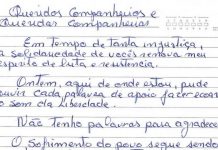 Queridos Companheiros e
Queridas Companheiras
Em Tempo de Tanta injustiça,
a solidariedade de vocês renova meu
espírito de luta e resistência.
Ontem, aqui de onde estou, pude
ouvir cada palavra de apoio fazer ecoar
o som da liberdade.
Não Tenho palavras para agradecer
O sofrimento do povo segue sendo